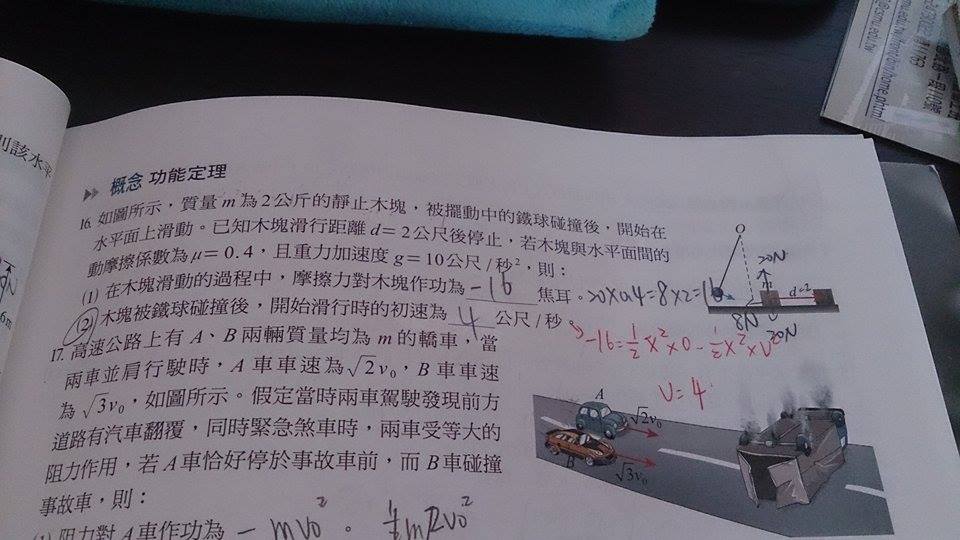 則該水平
6m
@smu.edu.tw
概念 功能定理
16. 如圖所示，質量 m 為 2 公斤的靜止木塊，被擺動中的鐵球碰撞後，開始在
水平面上滑動。已知木塊滑行距離 d = 2 公尺後停止，若木塊與水平面間的
動摩擦係數為 μ = 0.4，且重力加速度 g = 10 公尺 / 秒²，則：
(1) 在木塊滑動的過程中，摩擦力對木塊作功為 -16 焦耳。20×0.4=8×2=16
(2) 木塊被鐵球碰撞後，開始滑行時的初速為 4 公尺 / 秒。
O
20N
d=2
8N
20N
-16=½×2×0-½×2×V²
V=4
17. 高速公路上有 A、B 兩輛質量均為 m 的轎車，當
兩車並肩行駛時，A 車車速為 √2v₀，B 車車速
為 √3v₀，如圖所示。假定當時兩車駕駛發現前方
道路有汽車翻覆，同時緊急煞車時，兩車受等大的
阻力作用，若 A 車恰好停於事故車前，而 B 車碰撞
事故車，則：
(1) 阻力對 A 車作功為 -mv₀²。
A
√2v₀
B
√3v₀